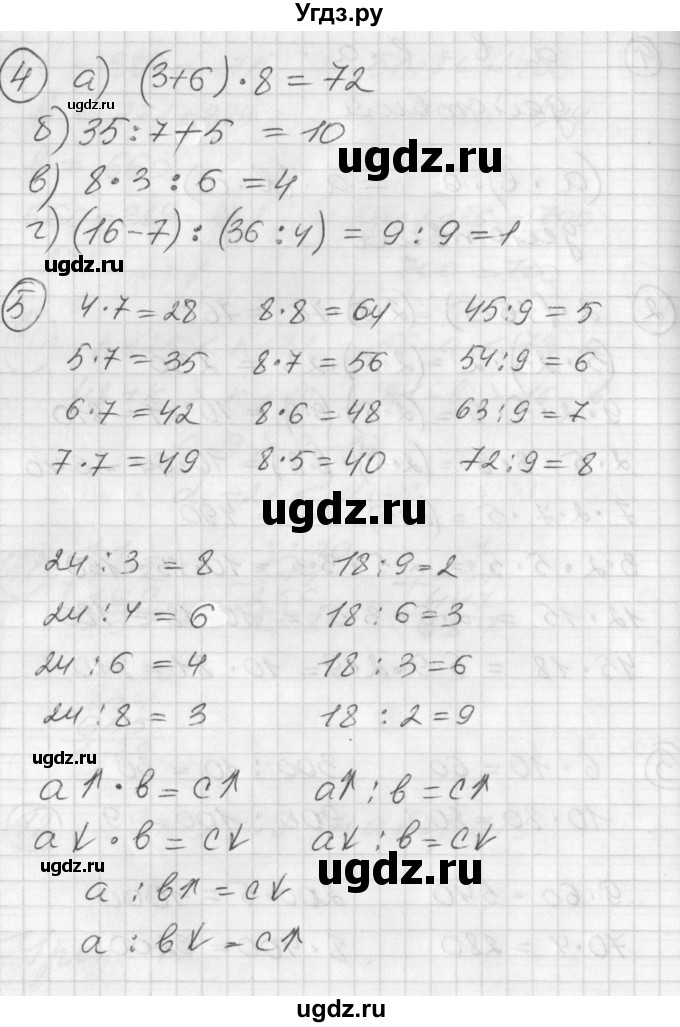 Угдз.ру
4 а) (3+6) · 8 = 72
ugdz.ru
б) 35 : 7 + 5 = 10
ugdz.ru
в) 8 · 3 : 6 = 4
г) (16 - 7) : (36 : 4) = 9 : 9 = 1
ugdz.ru
5 4 · 7 = 28 8 · 8 = 64 45 : 9 = 5
5 · 7 = 35 8 · 7 = 56 54 : 9 = 6
6 · 7 = 42 8 · 6 = 48 63 : 9 = 7
7 · 7 = 49 8 · 5 = 40 72 : 9 = 8
ugdz.ru
24 : 3 = 8 18 : 9 = 2
24 : 4 = 6 18 : 6 = 3
24 : 6 = 4 18 : 3 = 6
24 : 8 = 3 18 : 2 = 9
ugdz.ru
a↑ · в = c↑ a↑ : в = c↑
a↓ · в = c↓ a↓ : в = c↓
ugdz.ru
ugdz.ru
a : в↑ = c↓
a : в↓ = c↑
ugdz.ru